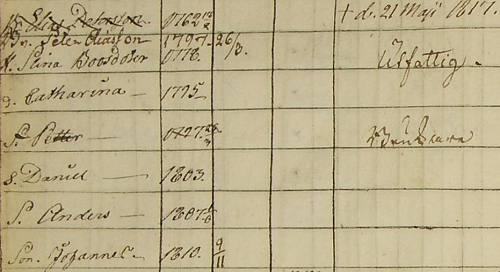 Elias Petersson 1762 † d. 21 Maji 1817.
Peter Eliasson 1797 26/3.
H. Stina Boosdoter 1778. Utfattig.
d. Catharina 1795
S. Petter
s. Daniel 1803.
S. Anders 1807
Son. Johannes. 1810. 9/11